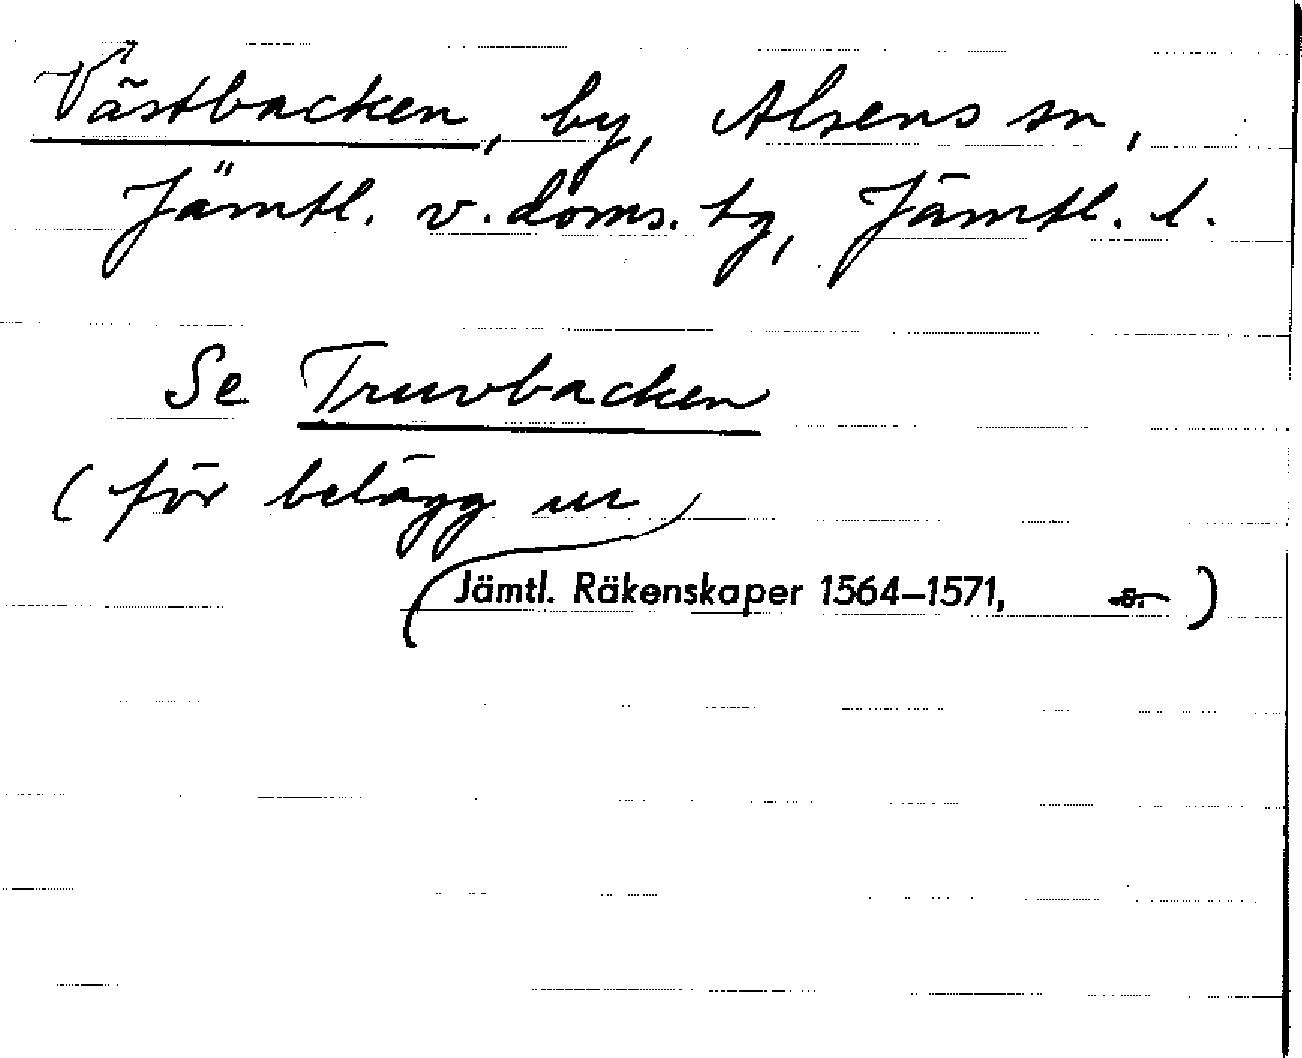 Västbacken, by, Alsens sn,
Jämtl. v. doms. tg, Jämtl. l.
Se Truvbacken
(för belägg ur
Jämtl. Räkenskaper 1564–1571, s. )